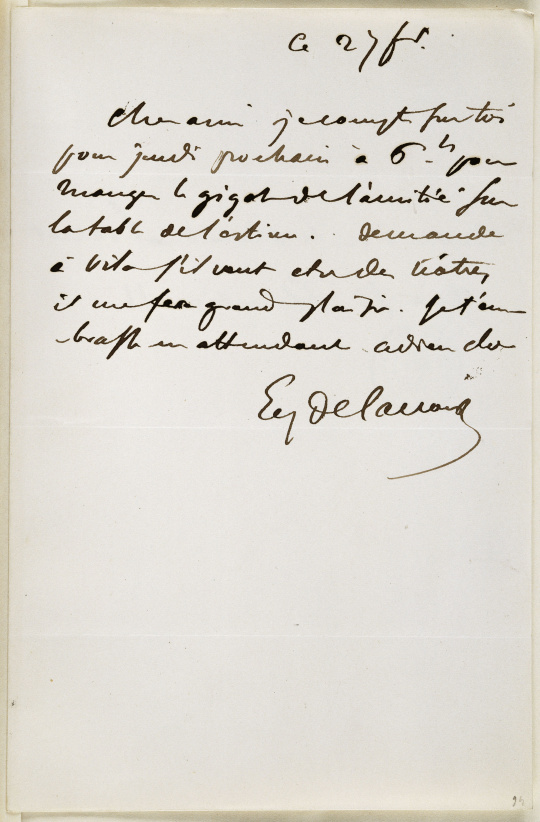 ce 27 fév.
cher ami je compte sur toi
pour jeudi prochain à 6 hs pour
manger le gigot de l'amitié sur
la table de l'estime. Demande
à s'il veut être des nôtres,
il me fera grand plaisir. Je t'em
brasse en attendant adieu cher
Eug Delacroix